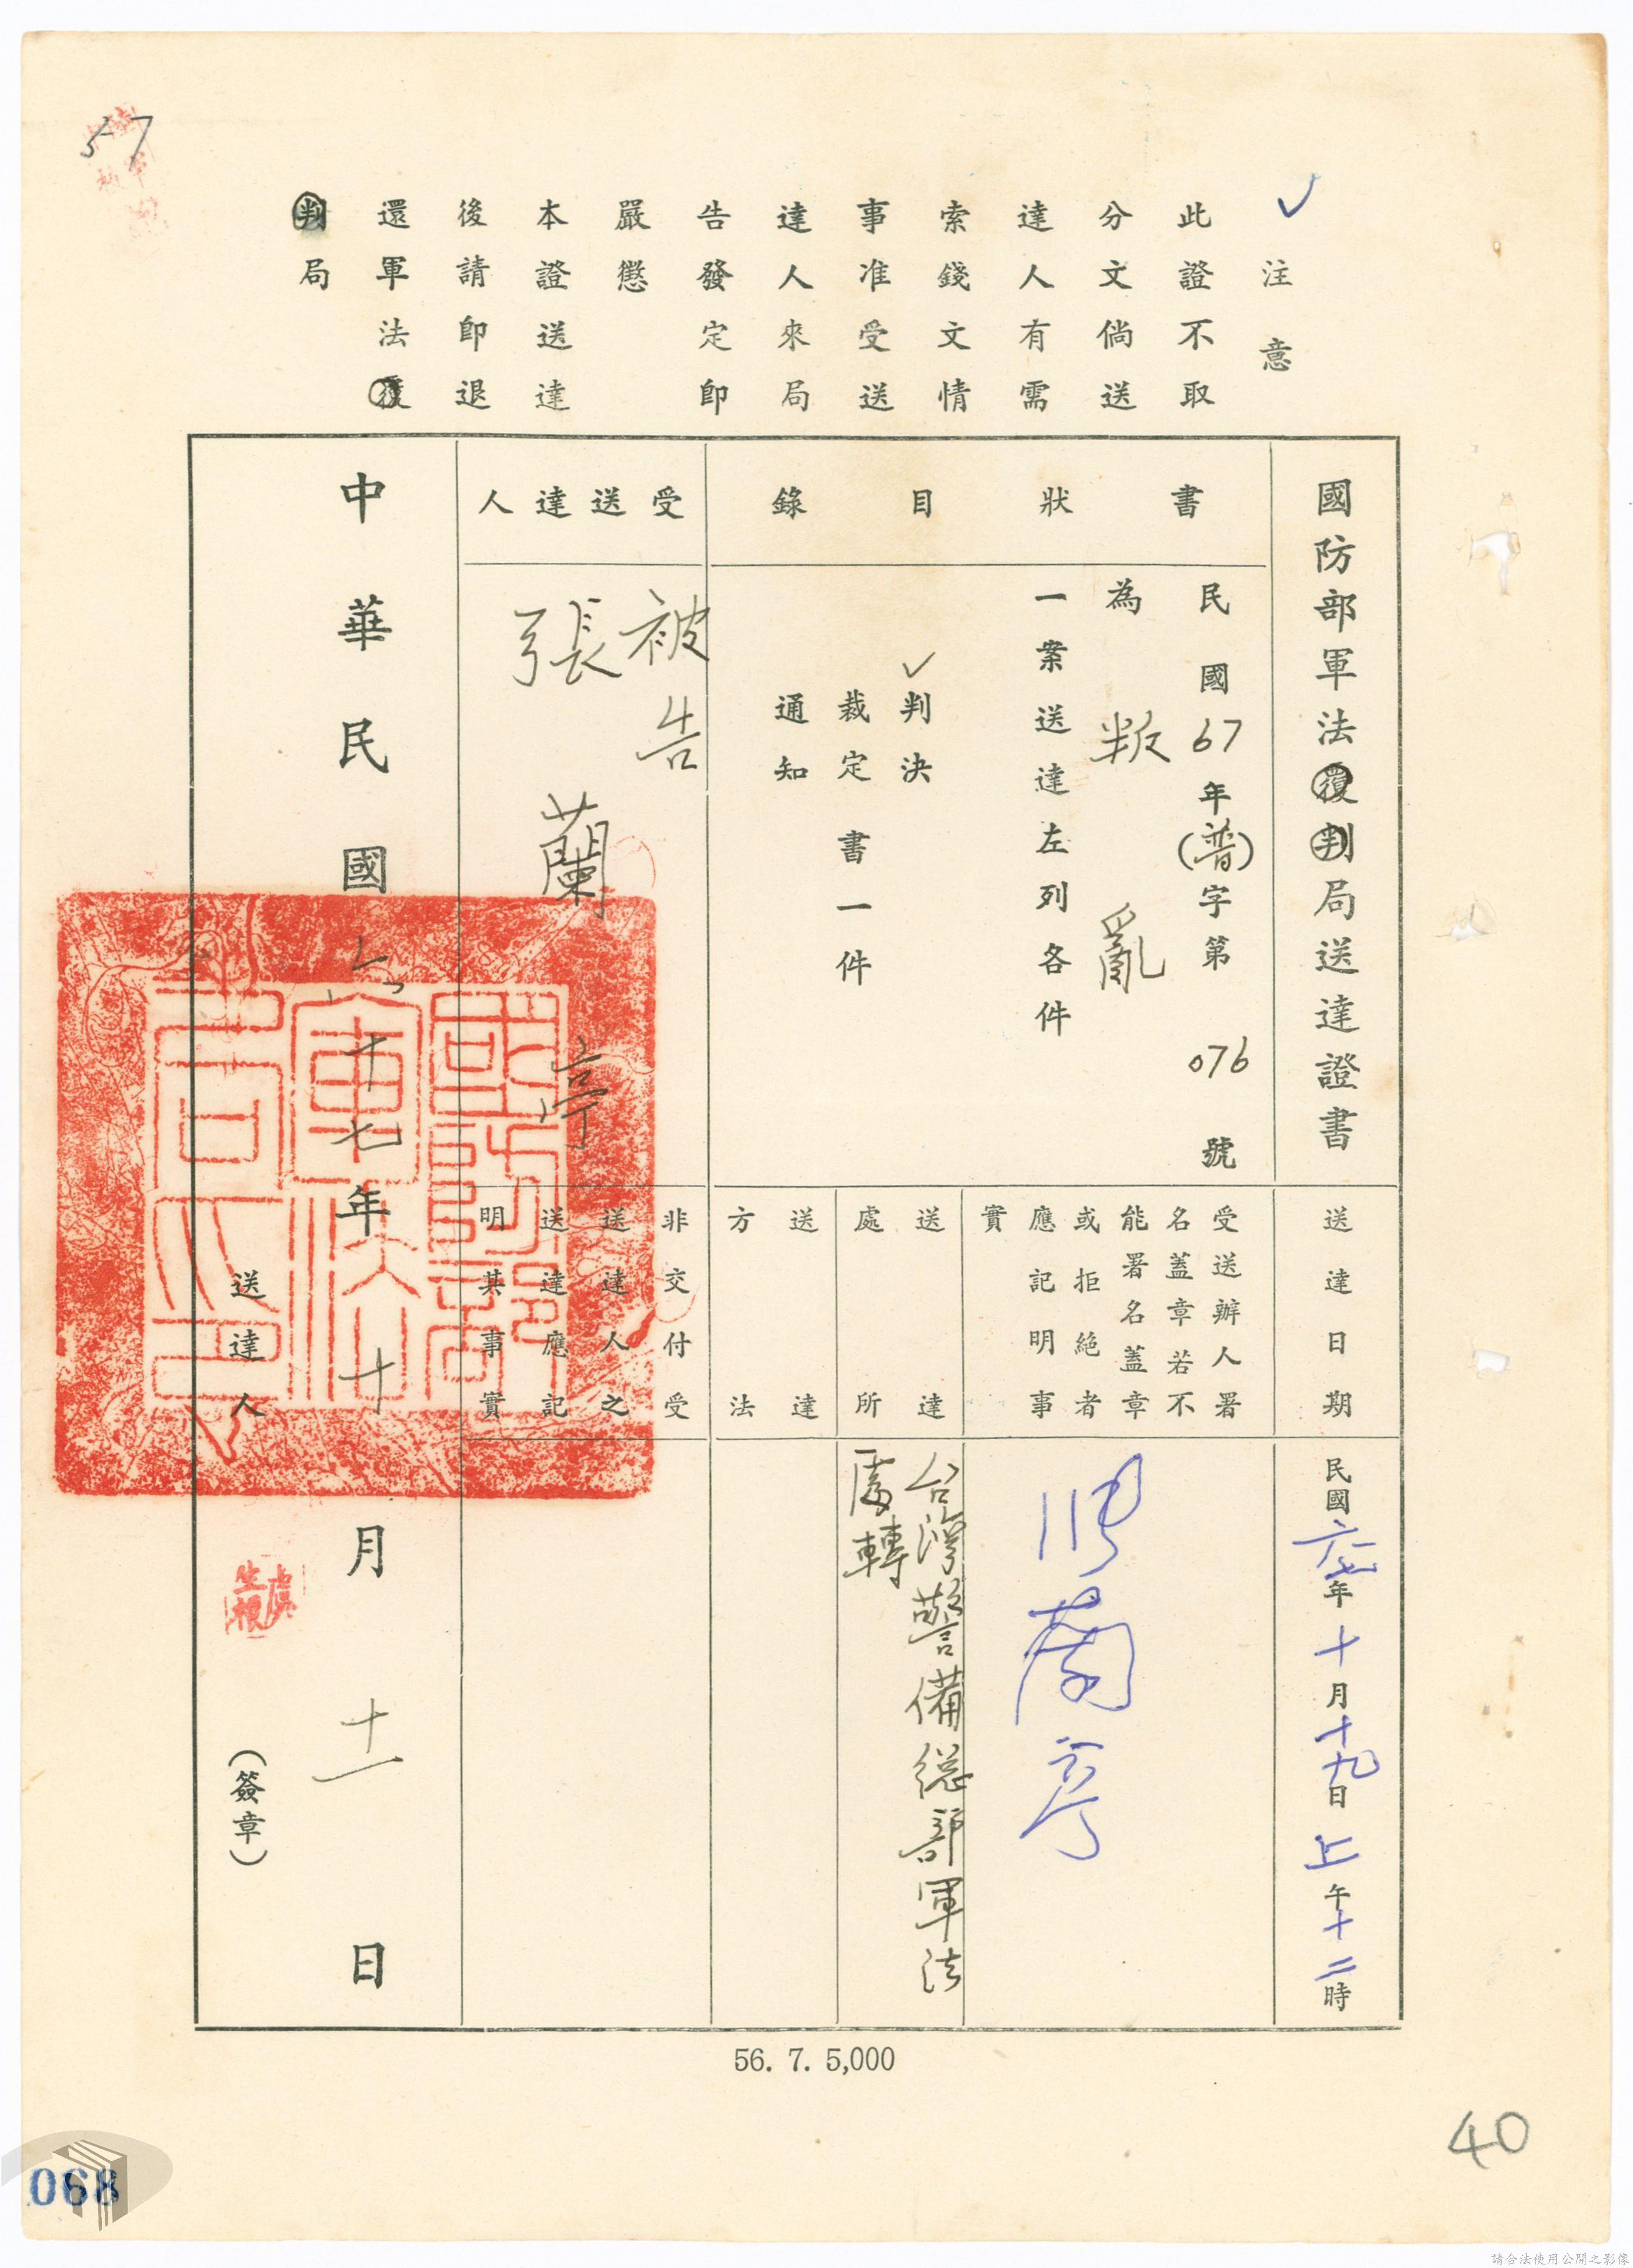 57
注意
此證不取
分文倘送
達人有需
索錢文情
事准受送
達人來局
告發定即
嚴懲
本證送達
後請即退
還軍法覆
判局
國防部軍法覆判局送達證書
書狀目錄
民國67年(普)字第076號
為叛亂
一案送達左列各件
判決
裁定書一件
通知
受送達人
被告
張蘭亭
送達日期
民國六七年十月十九日上午十二時
受送辦人署
名蓋章若不
能署名蓋章
或拒絕者
應記明事
實
張蘭亭
送達
處所
台灣警備總部軍法
處轉
送達
方法
非交付受
送達人之
送達應記
明其事實
中華民國六十七年十月十一日
國防部
軍法
局之印
送達人
虞
生根
(簽章)
56. 7. 5,000
40
068
請合法使用公開之影像